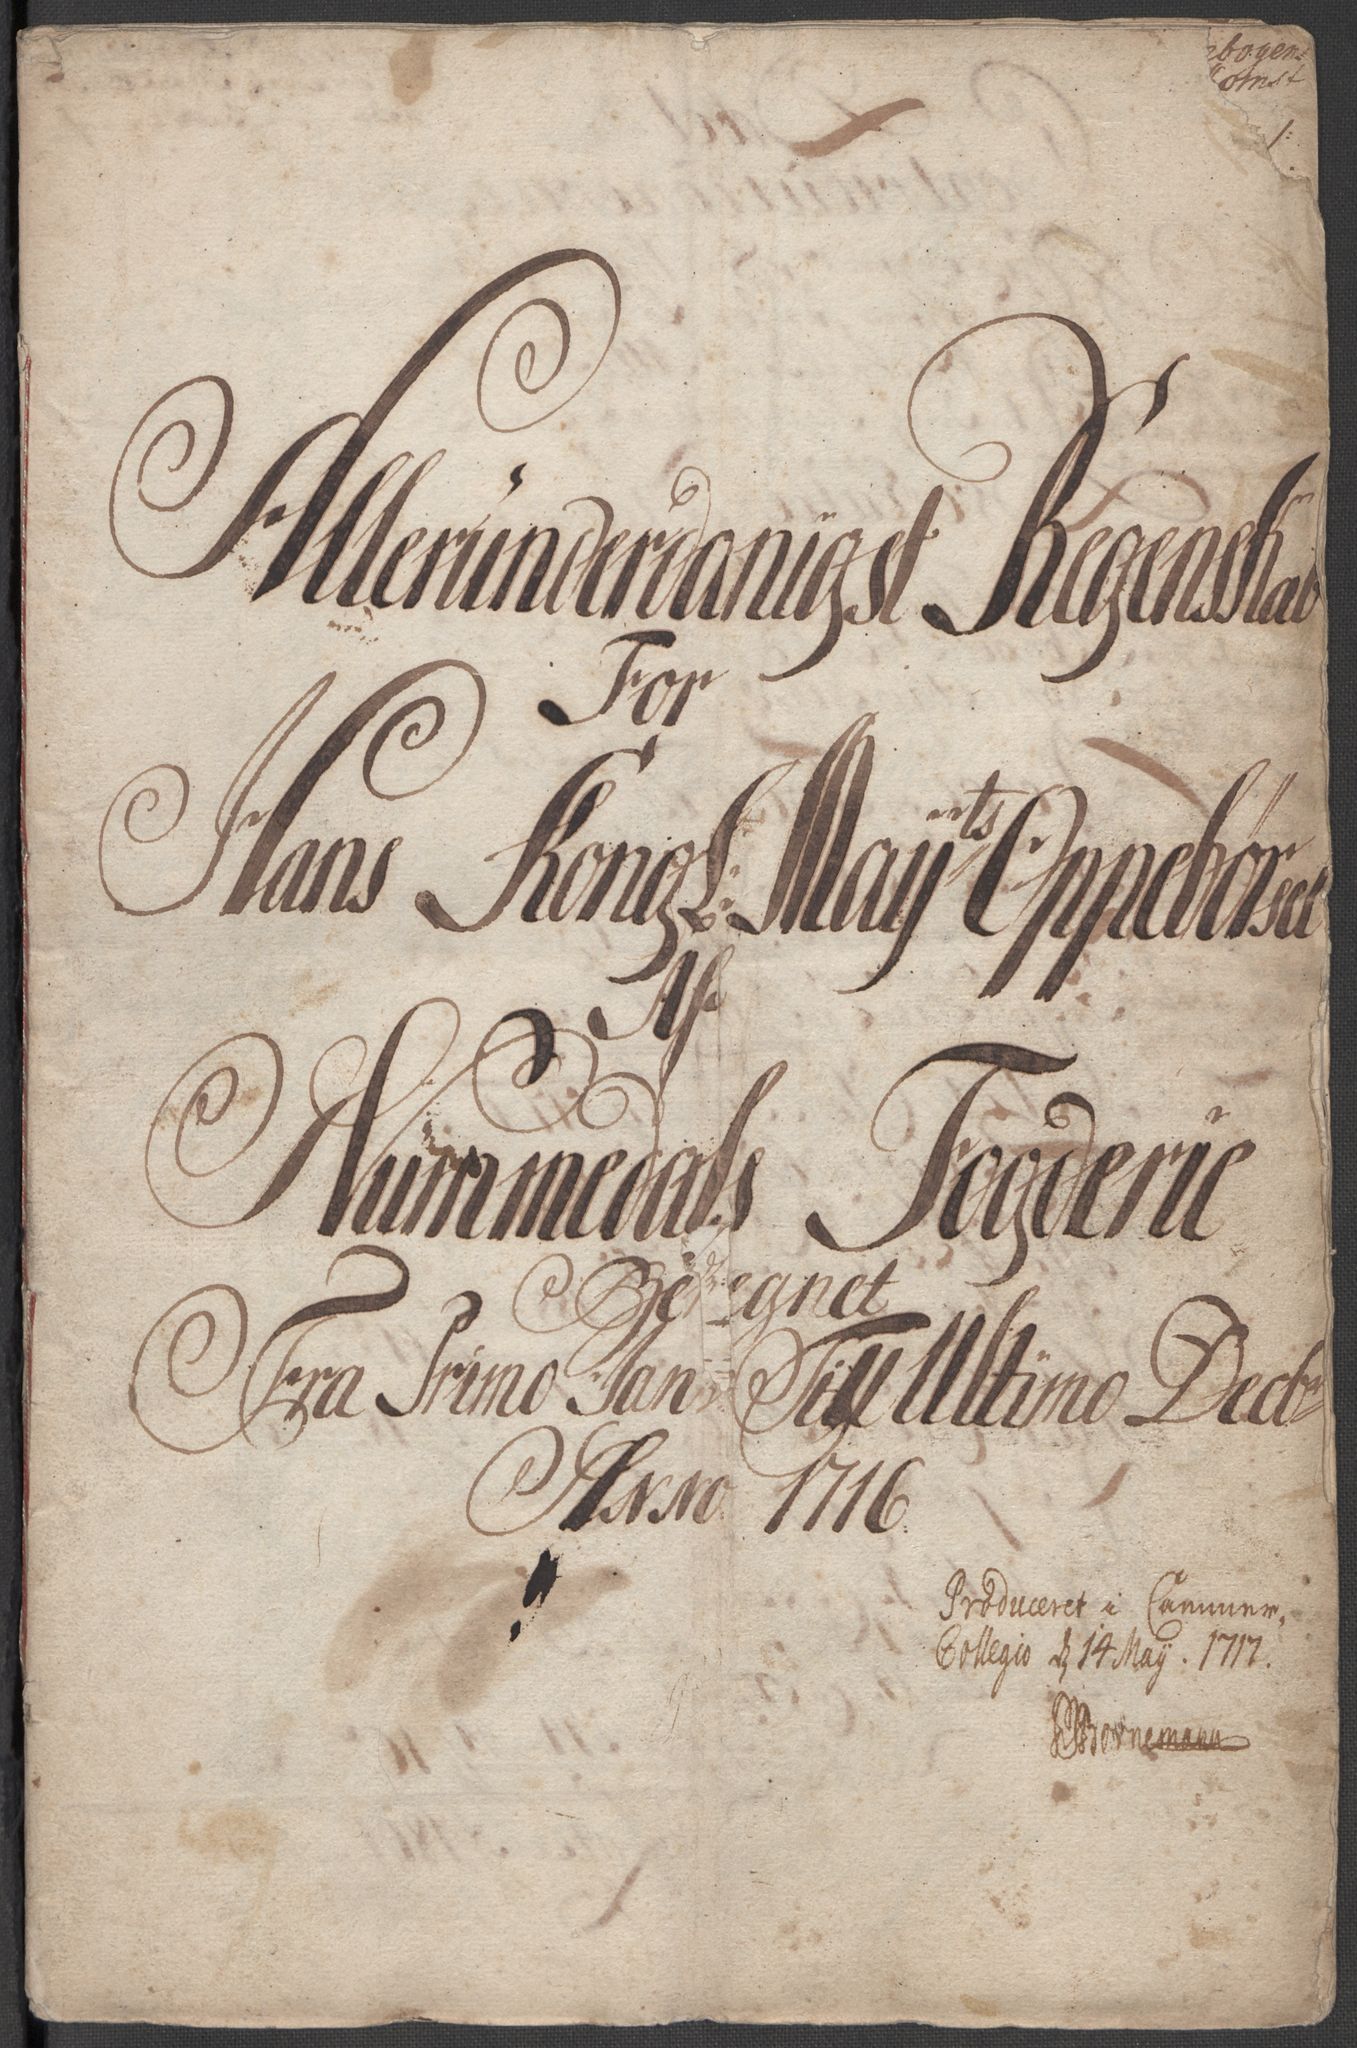 Alleründerdanigst Regenskab
For
Hans Kongl: Maÿts Oppebörsel
Af
Nümmedals Fogderie
Beregnet
Fra Primo Jan: Till Ultimo Decbr
Anno 1716
Produceret i Cammer
Collegio d 14 Maÿ. 1717.
Bornemann